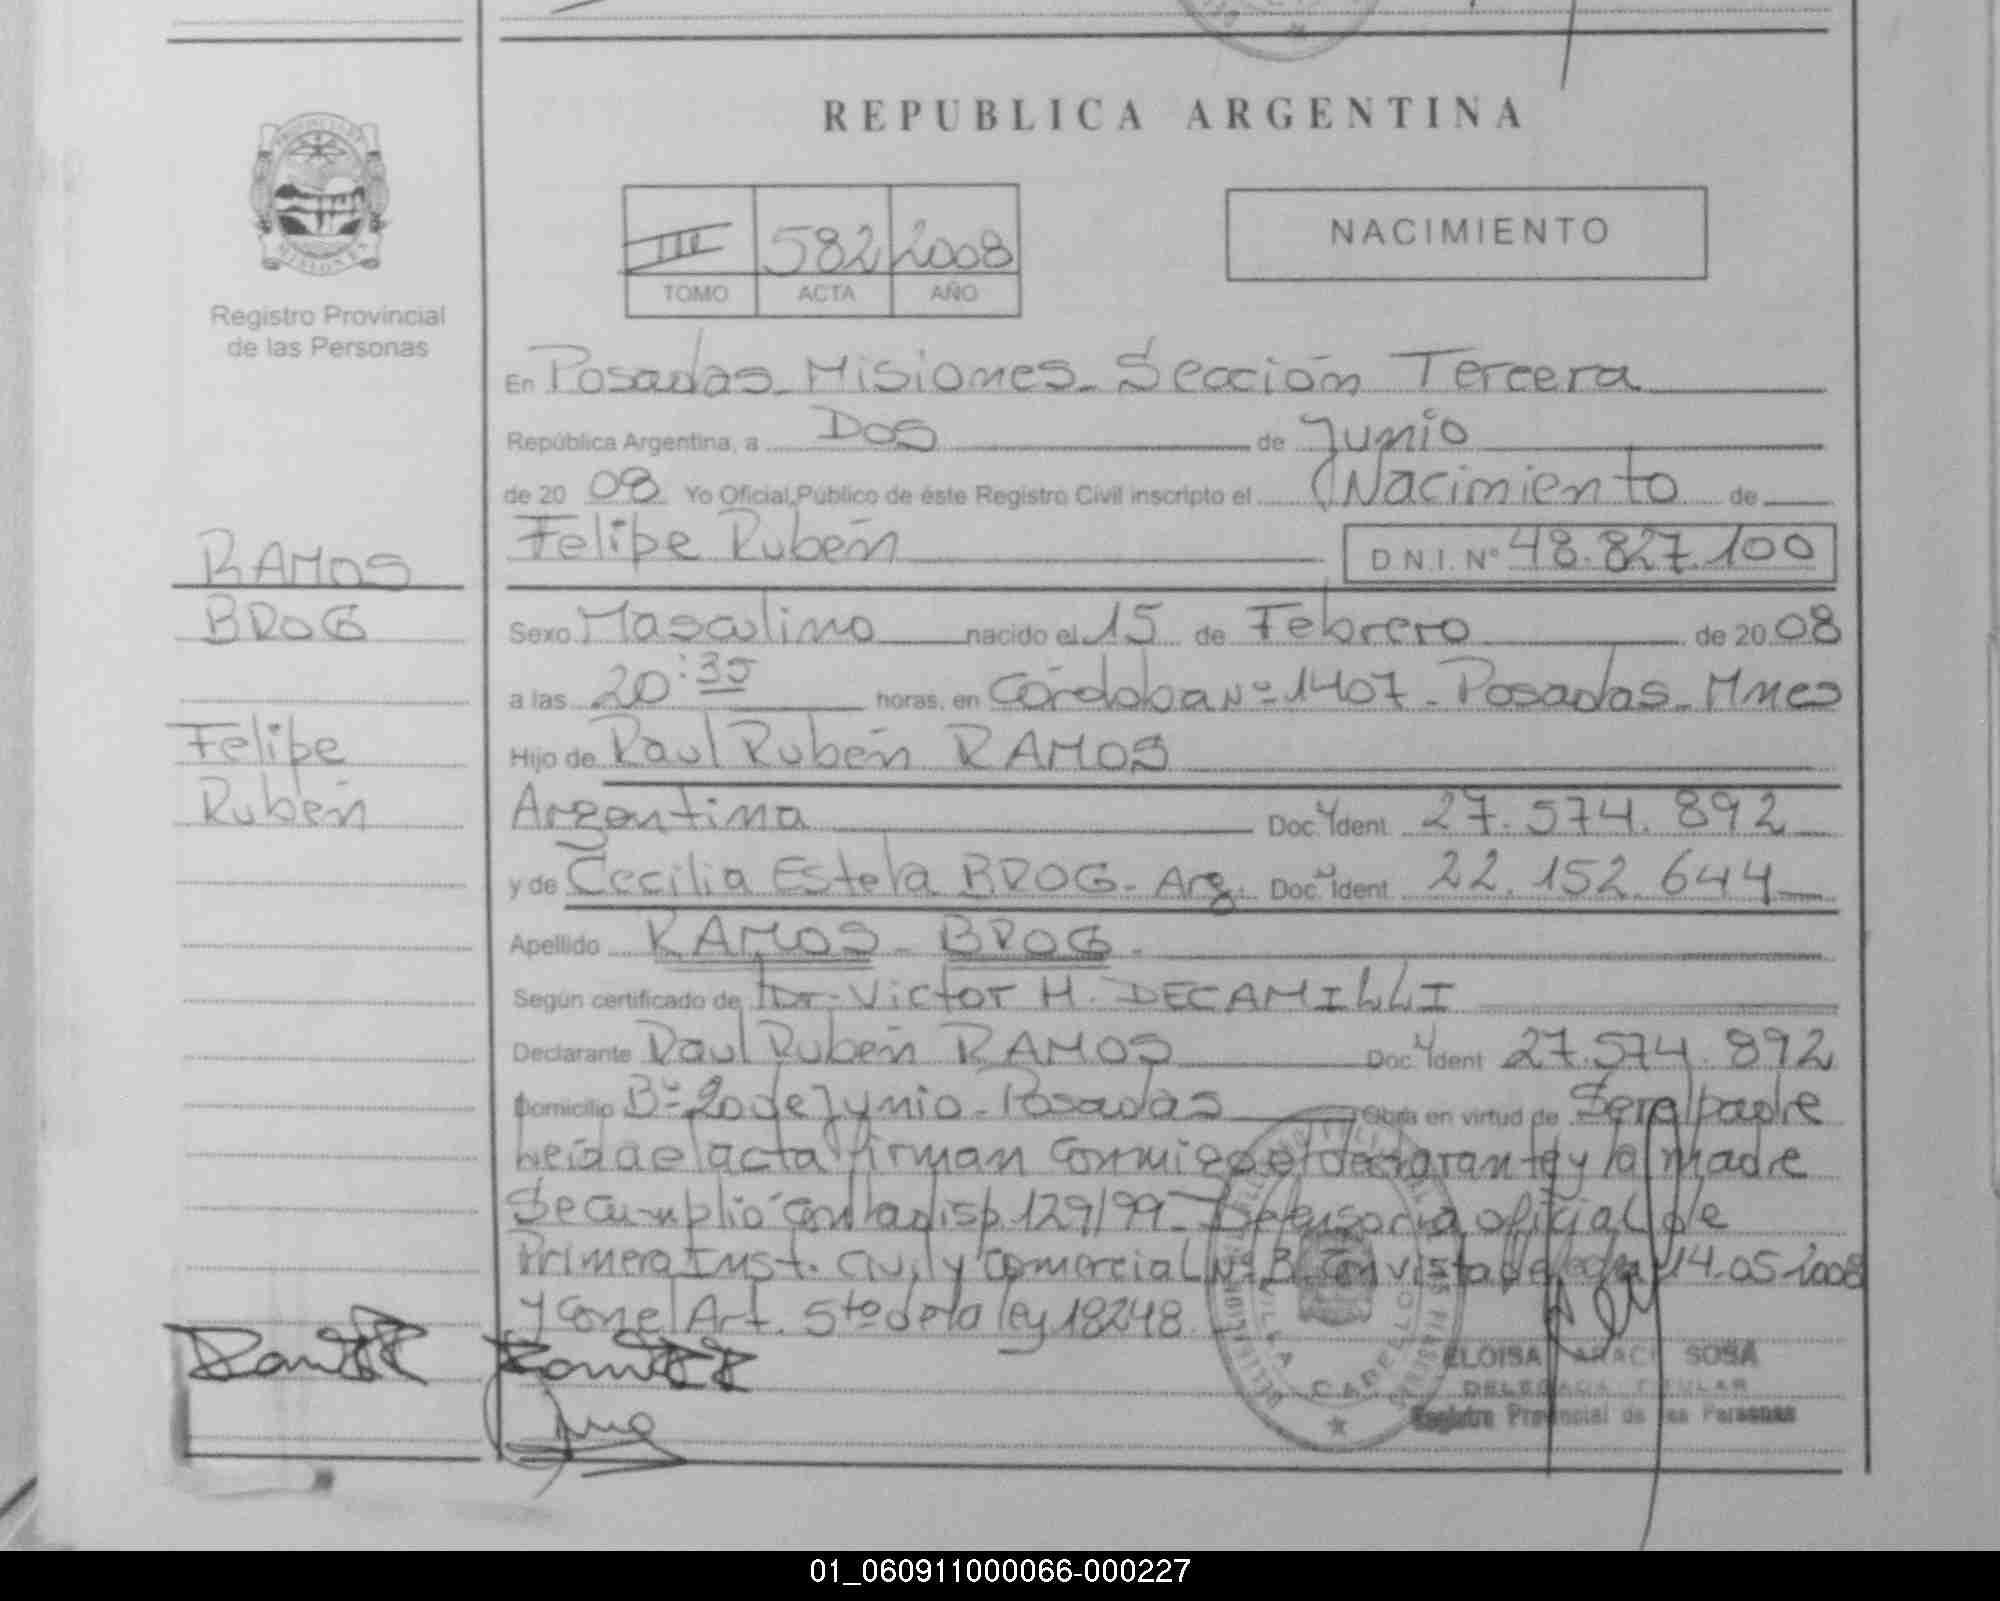 REPUBLICA ARGENTINA
III 582 2008
TOMO ACTA AÑO
NACIMIENTO
Registro Provincial
de las Personas
RAMOS
BROG
Felipe
Rubén
En Posadas - Misiones - Sección Tercera
República Argentina, a Dos de Junio
de 20 08 Yo Oficial Público de éste Registro Civil inscripto el Nacimiento de
Felipe Rubén D.N.I. Nº 48.827.100
Sexo Masculino nacido el 15 de Febrero de 20 08
a las 20:35 horas, en Córdoba Nº 1407 - Posadas - Mnes
Hijo de Raul Rubén RAMOS
Argentina Doc. Ident 27.574.892
y de Cecilia Estela BROG - Arg. Doc. Ident 22.152.644
Apellido RAMOS - BROG -
Según certificado de Dr. Victor H. DECAMILLI
Declarante Raul Rubén RAMOS Doc. Ident 27.574.892
Domicilio Bº 20 de Junio - Posadas Obra en virtud de Ser el padre
Leida el acta firman conmigo el declarante y la madre
Se cumplio con la disp. 129/99 - Defensoria oficial de
Primera Inst. Civil y Comercial Nº 3 Con vista de fecha 14-05-2008
y con el Art. 5to de la ley 18248.
ELOISA ARACI SOSA
DELEGADA TITULAR
Registro Provincial de las Personas
01_060911000066-000227